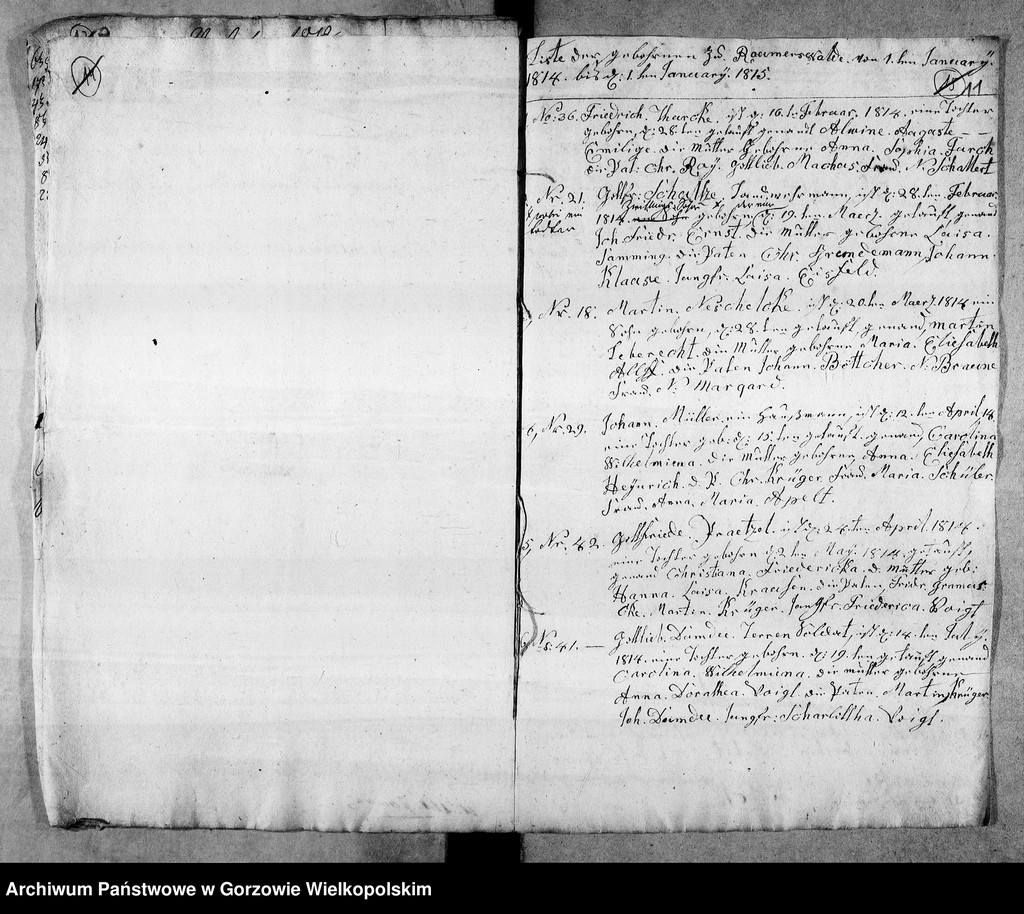 Liste der gebohrnen zu Raumerswalde. von 1. ten Januarÿ.
1814. bis d: 1. ten Januarÿ. 1815.
11
No: 36. Friedrich. Tharcke. ist d: 16. t Februar. 1814. eine Tochter
gebohrn, d: 28. ten getauft genandt Alwine. Augaste
Emilige. die Mutter gebohrne Anna. Sophia. Furch
die Pat: Chr. Ray. Gottlieb. Machus. Frau. N. Schallert
Nr. 21. Gottfr: Schulze Landwehrmann, ist d: 28. ten Februar.
1814. gebohrn d: 19. ten Maerz. getauft genand
Joh. Friedr. Ernst. die Mutter gebohrne Luisa.
Samming. die Paten. Chr. Johann.
Klaase. Jungfr: Luisa. Eisfeld.
Nr. 18. Martin. Neschelcke. ist d: 20. ten Maerz. 1814. ein
Sohn gebohrn, d: 28. ten getauft, genand, Martin
Leberecht. die Mutter gebohrne Maria. Eliesabeth
die Paten Johann. Böttcher. N: Braune
Frau. N: Margard.
Nr. 29. Johann. Müller. ein Haußmann, ist d: 12. ten April, 14.
eine Tochter geb: d: 15. ten getauft. genand Carolina
Wilhelmiena. die Mutter gebohrne Anna. Eliesabeth
Heynrich. d. P. Chr. Krüger. Frau. Maria. Schüler
Frau. Anna. Maria. Apelt.
5, Nr. 42. Gottfriede. Praetzel. ist d: 24. ten April. 1814.
eine Tochter gebohrn d 2 ten May. 1814. getauft,
genand Christiana. Friedericka. d. Mutter geb:
Hanna. Luisa. Kraasen. die Paten. Fridr. Gramas
cke. Martin. Krüger. Jungfr. Friederica. Voigt
No. 41. — Gottlieb. Dümdee. Terren Soldat, ist d: 14. ten Julÿ.
1814. eine Tochter gebohrn. d: 19. ten getauft genand
Carolina. Wilhelmiena. die Mutter gebohrne
Anna. Dorathea. Voigt. die Paten. Martin Krüger
Joh. Dümdee. Jungfr: Scharlottha. Voigt.
Archiwum Państwowe w Gorzowie Wielkopolskim